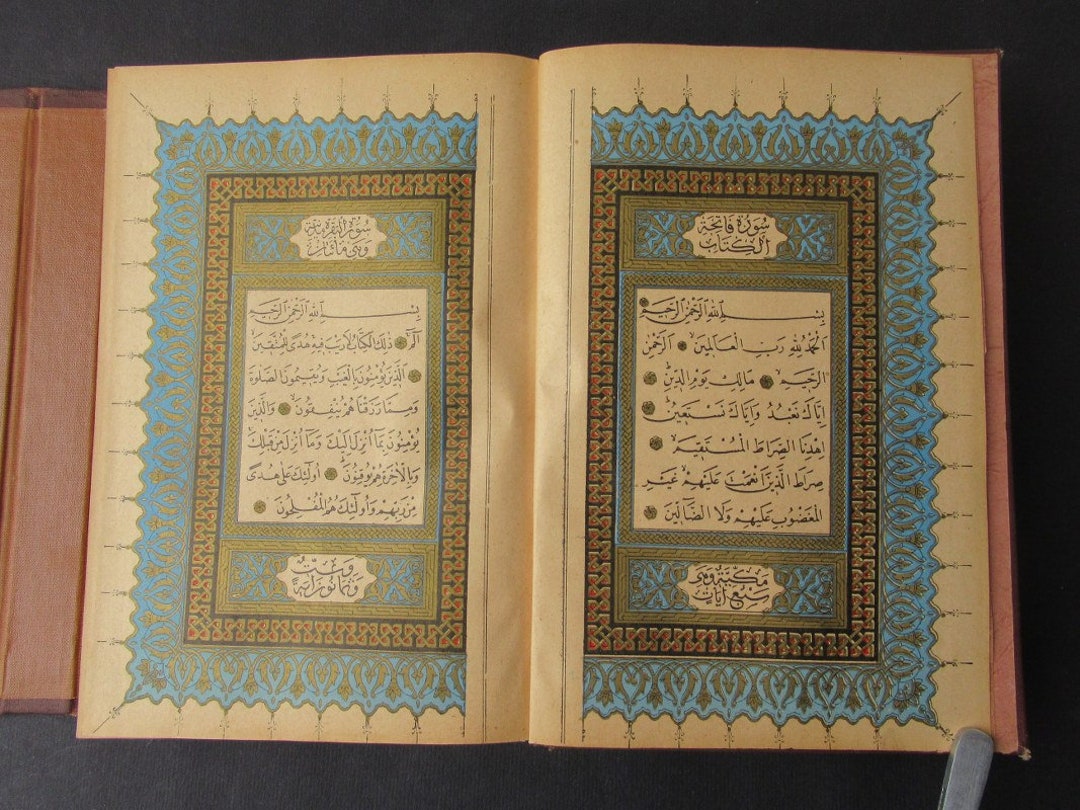 سُورَةُ فَاتِحَةِ
الْكِتَابِ
بِسْمِ اللّٰهِ الرَّحْمٰنِ الرَّحِيمِ
اَلْحَمْدُ لِلّٰهِ رَبِّ الْعَالَمِينَ اَلرَّحْمٰنِ
الرَّحِيمِ مَالِكِ يَوْمِ الدِّينِ
اِيَّاكَ نَعْبُدُ وَاِيَّاكَ نَسْتَعِينُ
اِهْدِنَا الصِّرَاطَ الْمُسْتَقِيمَ
صِرَاطَ الَّذِينَ اَنْعَمْتَ عَلَيْهِمْ غَيْرِ
الْمَغْضُوبِ عَلَيْهِمْ وَلَا الضَّالِّينَ
مَكِّيَّةٌ وَهِيَ
سَبْعُ اٰيَاتٍ
سُورَةُ الْبَقَرَةِ مَدَنِيَّةٌ
وَهِيَ مِائَتَانِ
بِسْمِ اللّٰهِ الرَّحْمٰنِ الرَّحِيمِ
الٓمٓ ذٰلِكَ الْكِتَابُ لَا رَيْبَ فِيهِ هُدًى لِلْمُتَّقِينَ
اَلَّذِينَ يُؤْمِنُونَ بِالْغَيْبِ وَيُقِيمُونَ الصَّلٰوةَ
وَمِمَّا رَزَقْنَاهُمْ يُنْفِقُونَ وَالَّذِينَ
يُؤْمِنُونَ بِمَا اُنْزِلَ اِلَيْكَ وَمَا اُنْزِلَ مِنْ قَبْلِكَ
وَبِالْاٰخِرَةِ هُمْ يُوقِنُونَ اُولٰئِكَ عَلٰى هُدًى
مِنْ رَبِّهِمْ وَاُولٰئِكَ هُمُ الْمُفْلِحُونَ
وَسِتٌّ
وَثَمَانُونَ اٰيَةً